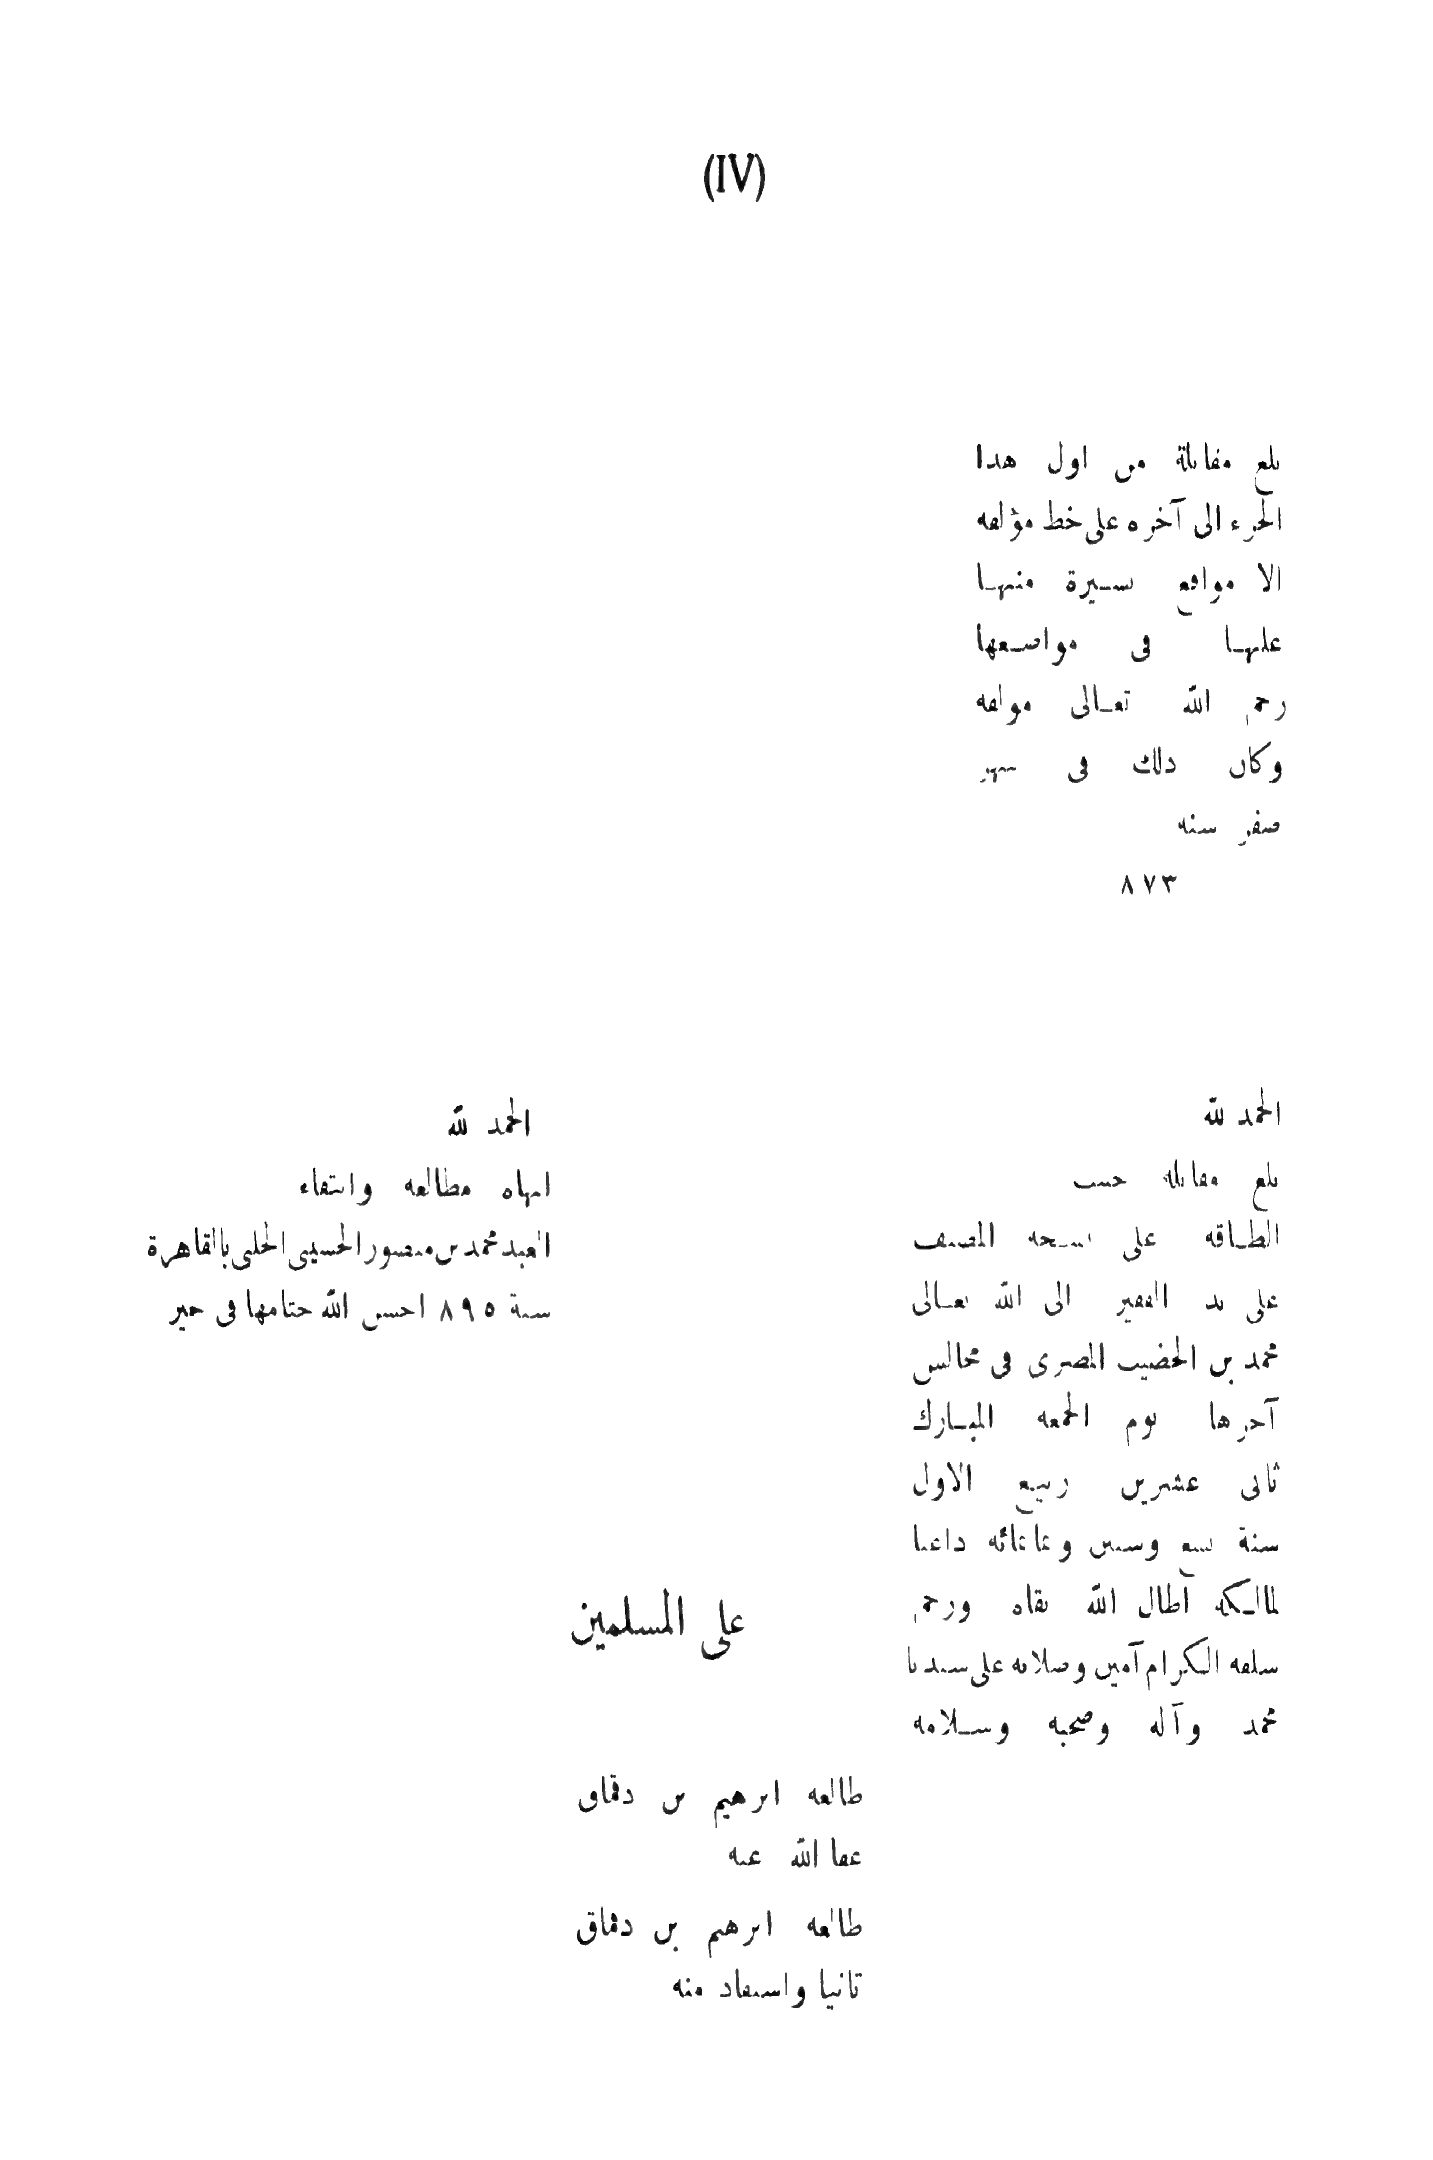 (IV)
بلغ مقابلة من اول هدا
الجزء الى آخره على خط مؤلفه
الا مواقع يسيرة منهـا
علهـا فى مواصـعها
رحم الله تعـالى مولفه
وكان دلك فى سهر
صفر سنه
٨٧٣
الحمد لله
بلغ مقابله حسب
الطـاقه على نسـحه المصنف
على يد الفقير الى الله تعـالى
محمد بن الحضيب المصرى فى مجالس
آحرها يوم الجمعه المبـارك
ثانى عشرين ربيع الاول
سنة وستين وثمانمائه داعيا
لمالـكه اطال الله بقاه ورحم
سلفه الـكرام آمين وصلاته على سيدنا
محمد وآله وصحبه وسـلامه
الحمد لله
انهاه مطالعه وانتقاء
العبد محمد بن منصور الحسينى الحلبى بالقاهرة
سنة ٨٩٥ احسن الله حتامها فى حير
على المسلمين
طالعه ابرهيم بن دقماق
عفا الله عنه
طالعه ابرهم بن دقماق
تانيا واستفاد منه